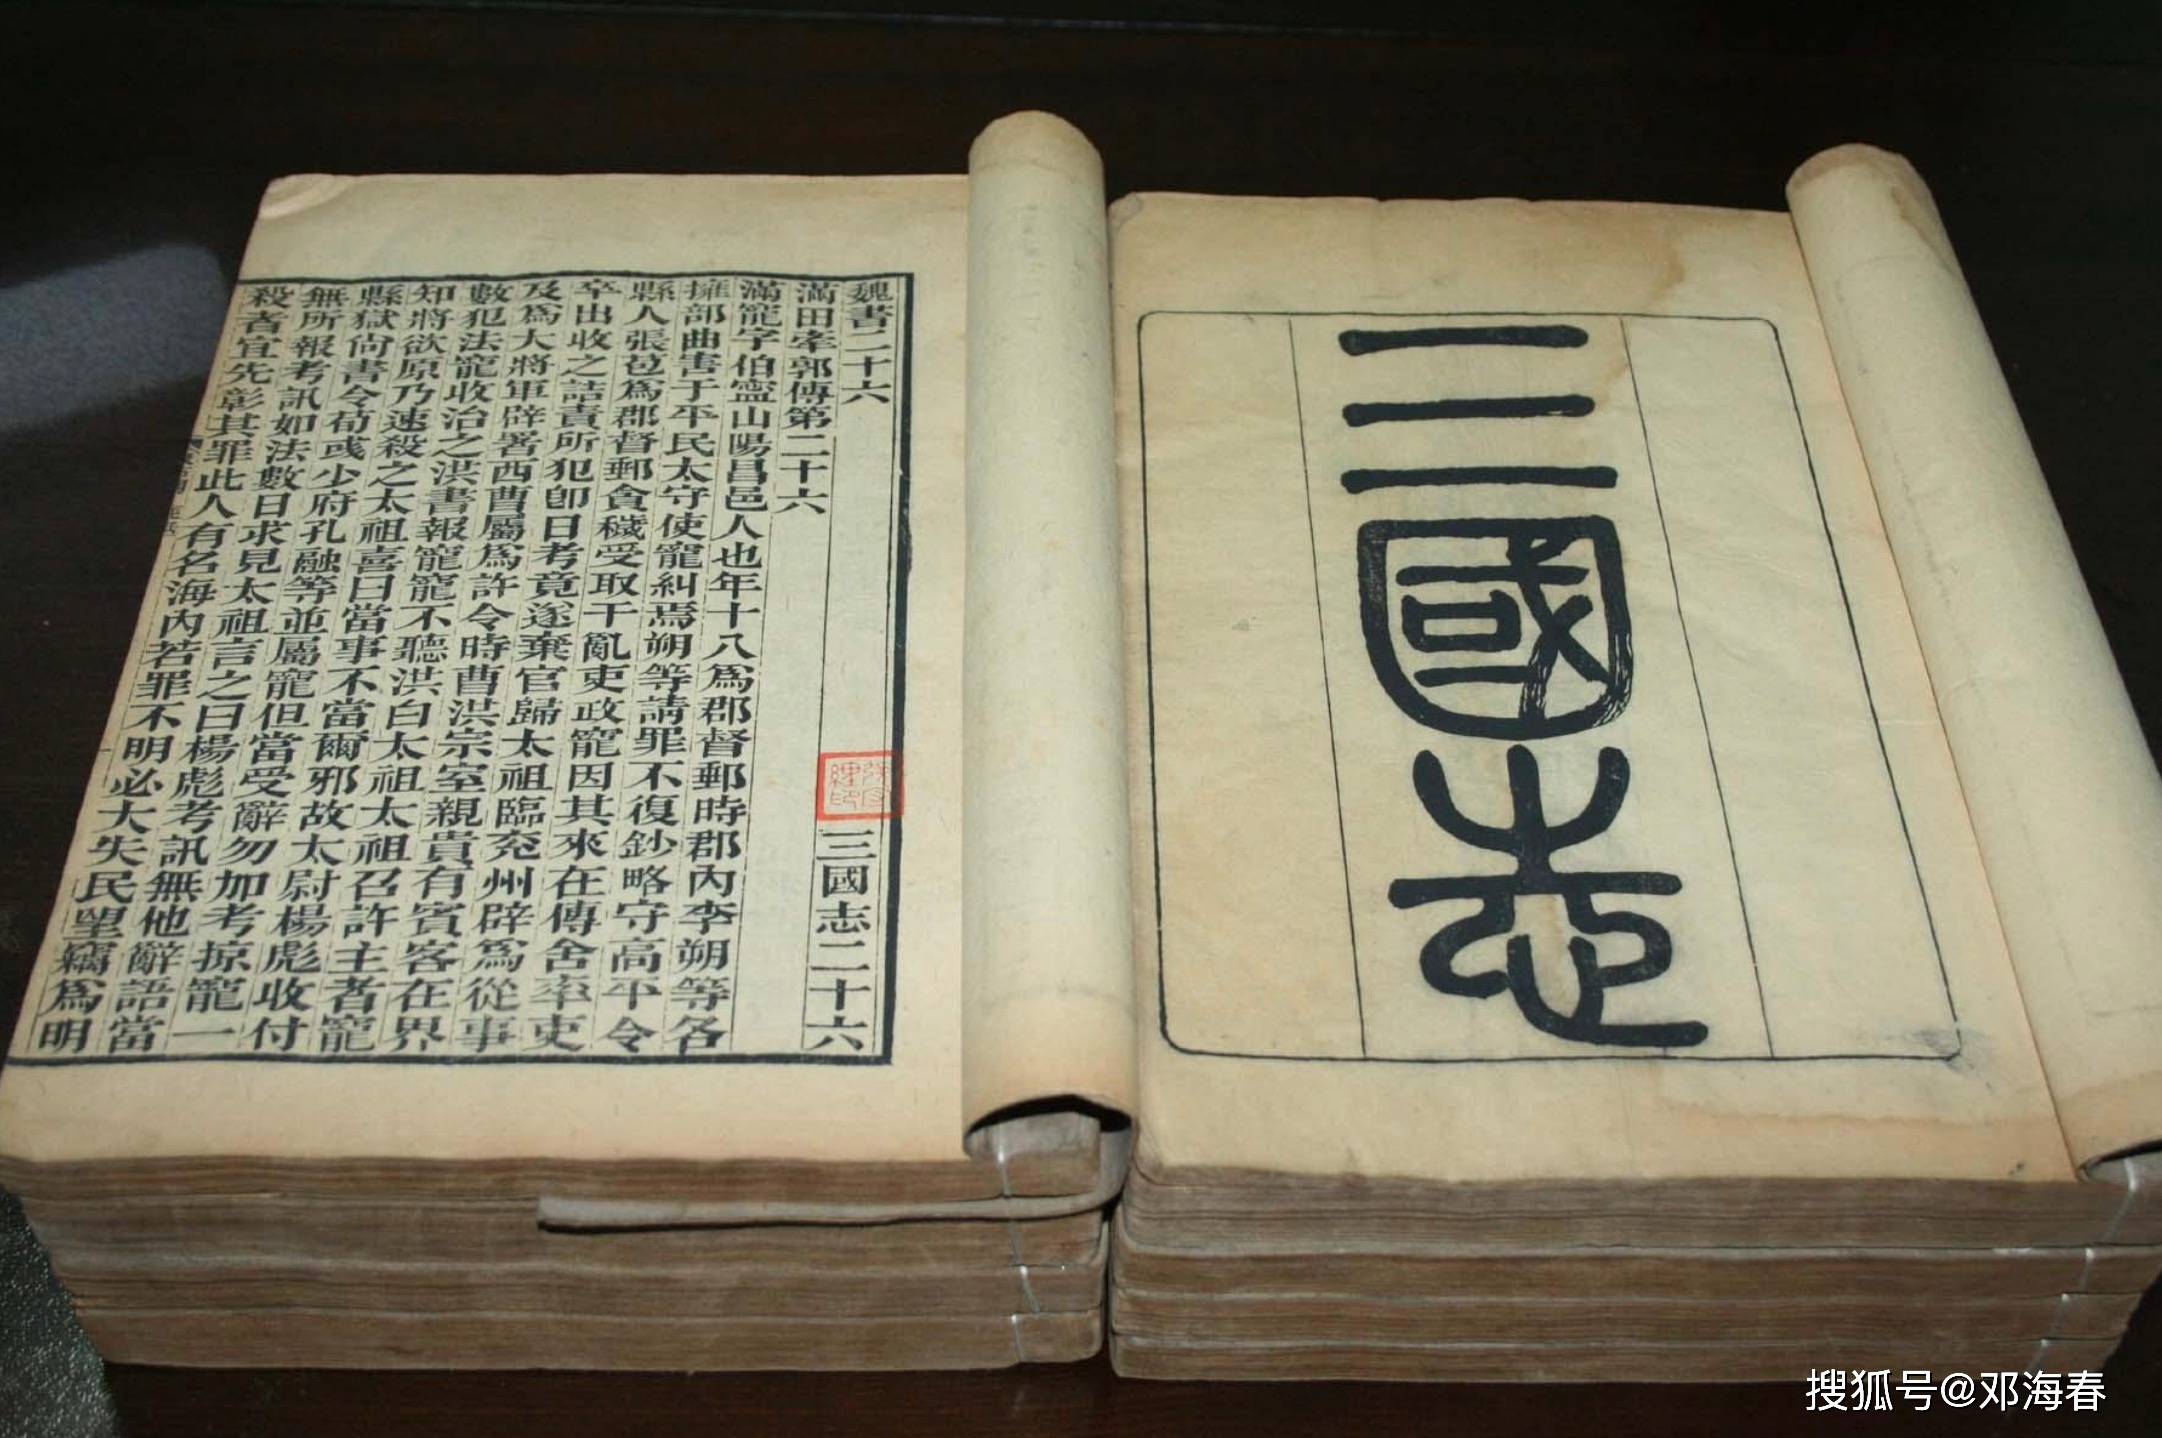 三國志
魏書二十六
三國志二十六
滿田牽郭傳第二十六
滿寵字伯寧山陽昌邑人也年十八爲郡督郵時郡內李朔等各
擁部曲害于平民太守使寵糾焉朔等請罪不復鈔略守高平令
縣人張苞爲郡督郵貪穢受取干亂吏政寵因其來在傳舍率吏
卒出收之詰責所犯卽日考竟遂棄官歸太祖臨兗州辟爲從事
及爲大將軍辟署西曹屬爲許令時曹洪宗室親貴有賓客在界
數犯法寵收治之洪書報寵寵不聽洪白太祖太祖召許主者寵
知將欲原乃速殺之太祖喜曰當事不當爾邪故太尉楊彪收付
縣獄尙書令荀彧少府孔融等並屬寵但當受辭勿加考掠寵一
無所報考訊如法數日求見太祖言之曰楊彪考訊無他辭語當
殺者宜先彰其罪此人有名海內若罪不明必大失民望竊爲明
搜狐号@邓海春